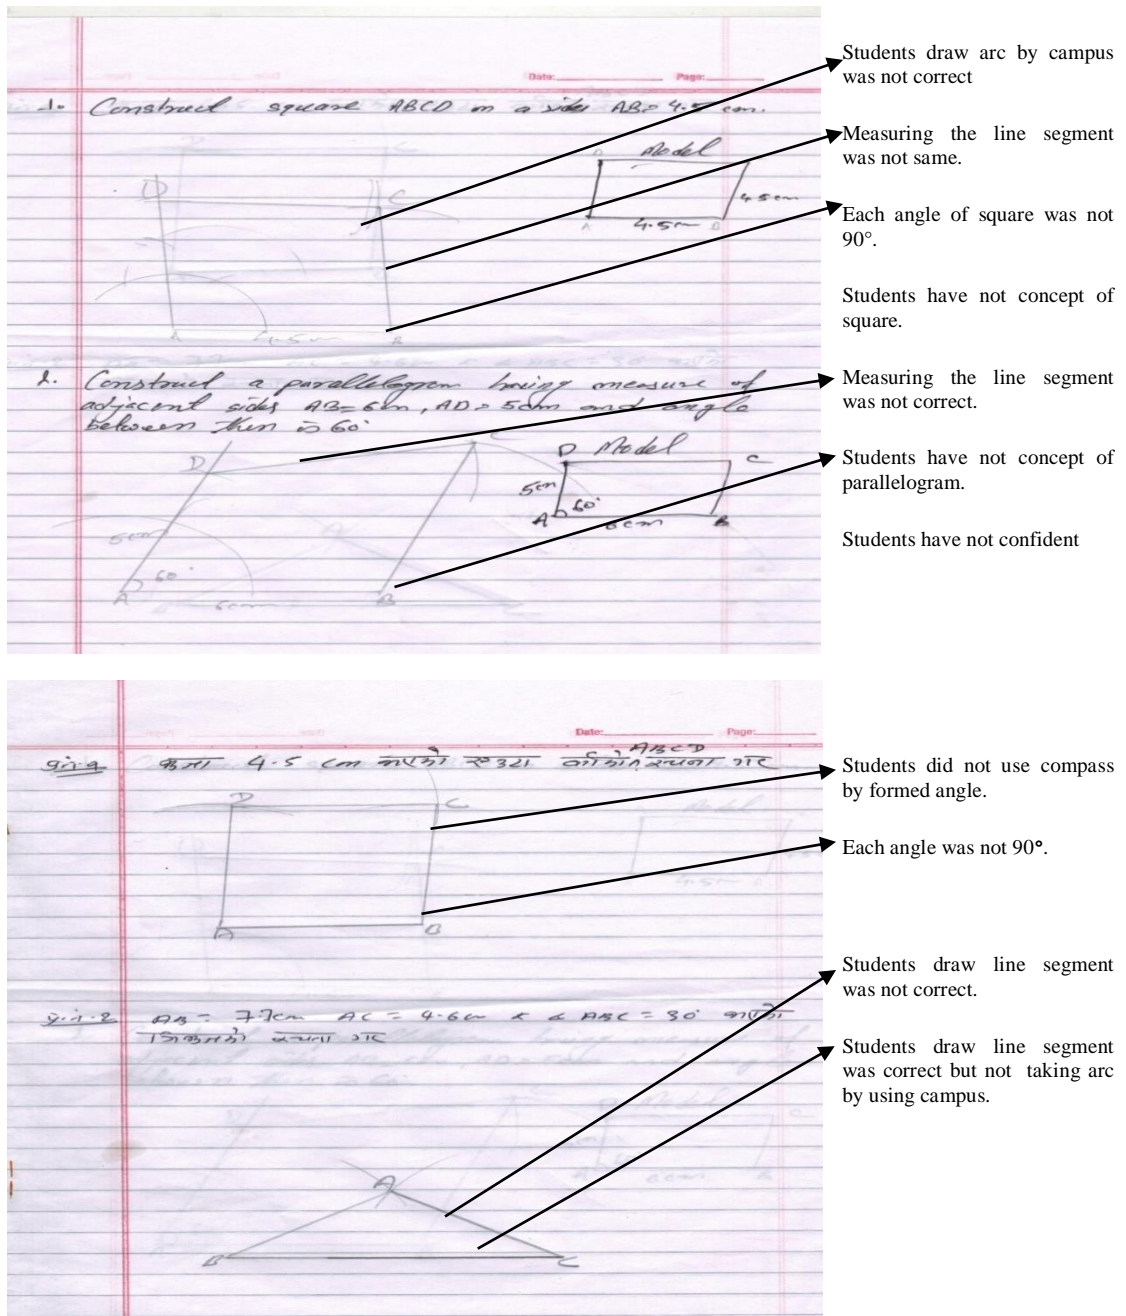 Date: Page:
1. Construct square ABCD on a side AB= 4.5 cm.
Model
D
C
4.5cm
A
4.5cm
B
D
C
A
4.5cm
B
2. Construct a parallelogram having measure of
adjacent sides AB=6cm, AD= 5cm and angle
between then is 60°
D
C
5cm
60°
A
6cm
B
Model
D
C
5cm
60°
A
6cm
B
Students draw arc by campus
was not correct
Measuring the line segment
was not same.
Each angle of square was not
90°.
Students have not concept of
square.
Measuring the line segment
was not correct.
Students have not concept of
parallelogram.
Students have not confident
Date: Page:
4.5 cm भएको एउटा ABCD रचना गर
D
C
A
B
AB = 7.7cm AC = 4.6cm ABC = 30° भएको
रचना गर
A
B
C
Students did not use compass
by formed angle.
Each angle was not 90°.
Students draw line segment
was not correct.
Students draw line segment
was correct but not taking arc
by using campus.